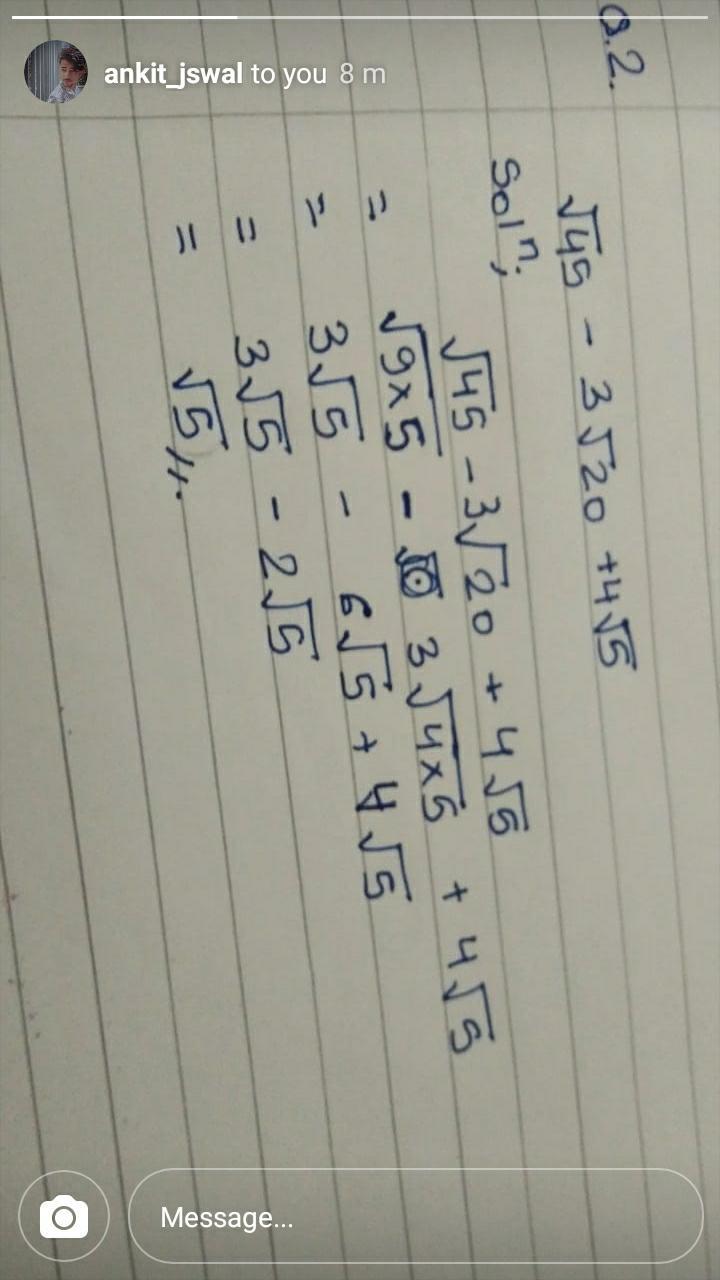 ankit_jswal to you 8 m
Q.2.
√45 - 3√20 +4√5
Solⁿ.,
√45 - 3√20 + 4√5
= √9×5 - 3√4×5 + 4√5
= 3√5 - 6√5 + 4√5
= 3√5 - 2√5
= √5 //.
Message...